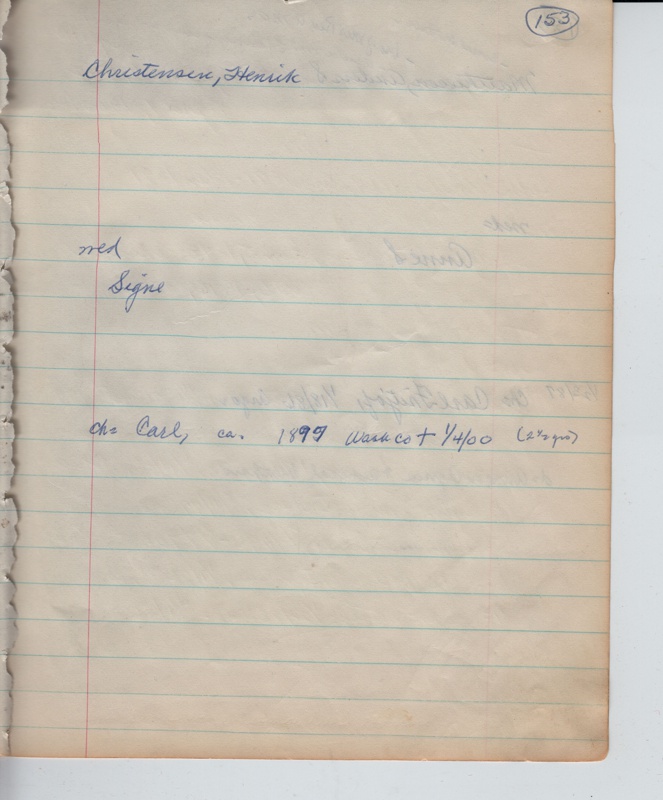 153
Christensen, Henrik
med
Signe
ch= Carl, ca. 1899 Wash co + 1/4/00 (2 1/2 yrs)